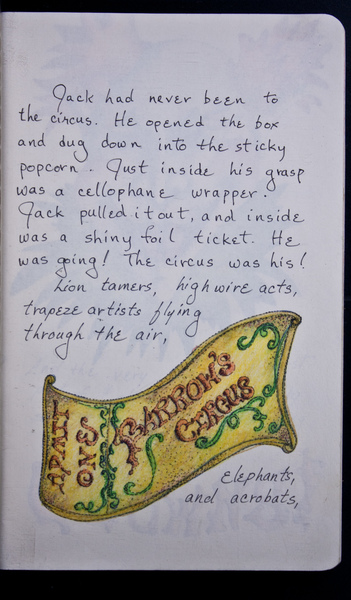 Jack had never been to
the circus. He opened the box
and dug down into the sticky
popcorn. Just inside his grasp
was a cellophane wrapper.
Jack pulled it out, and inside
was a shiny foil ticket. He
was going! The circus was his!
Lion tamers, high wire acts,
trapeze artists flying
through the air,
ADMIT
ONE
BARROW'S
CIRCUS
Elephants,
and acrobats,